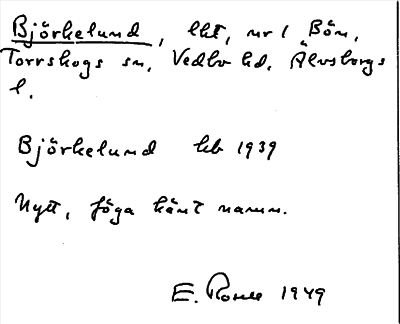 Björkelund, lht, nr 1 Bön,
Torrskogs sn, Vedbo hd, Älvsborgs
l.
Björkelund hb 1939
Nytt, föga känt namn.
E. 1949